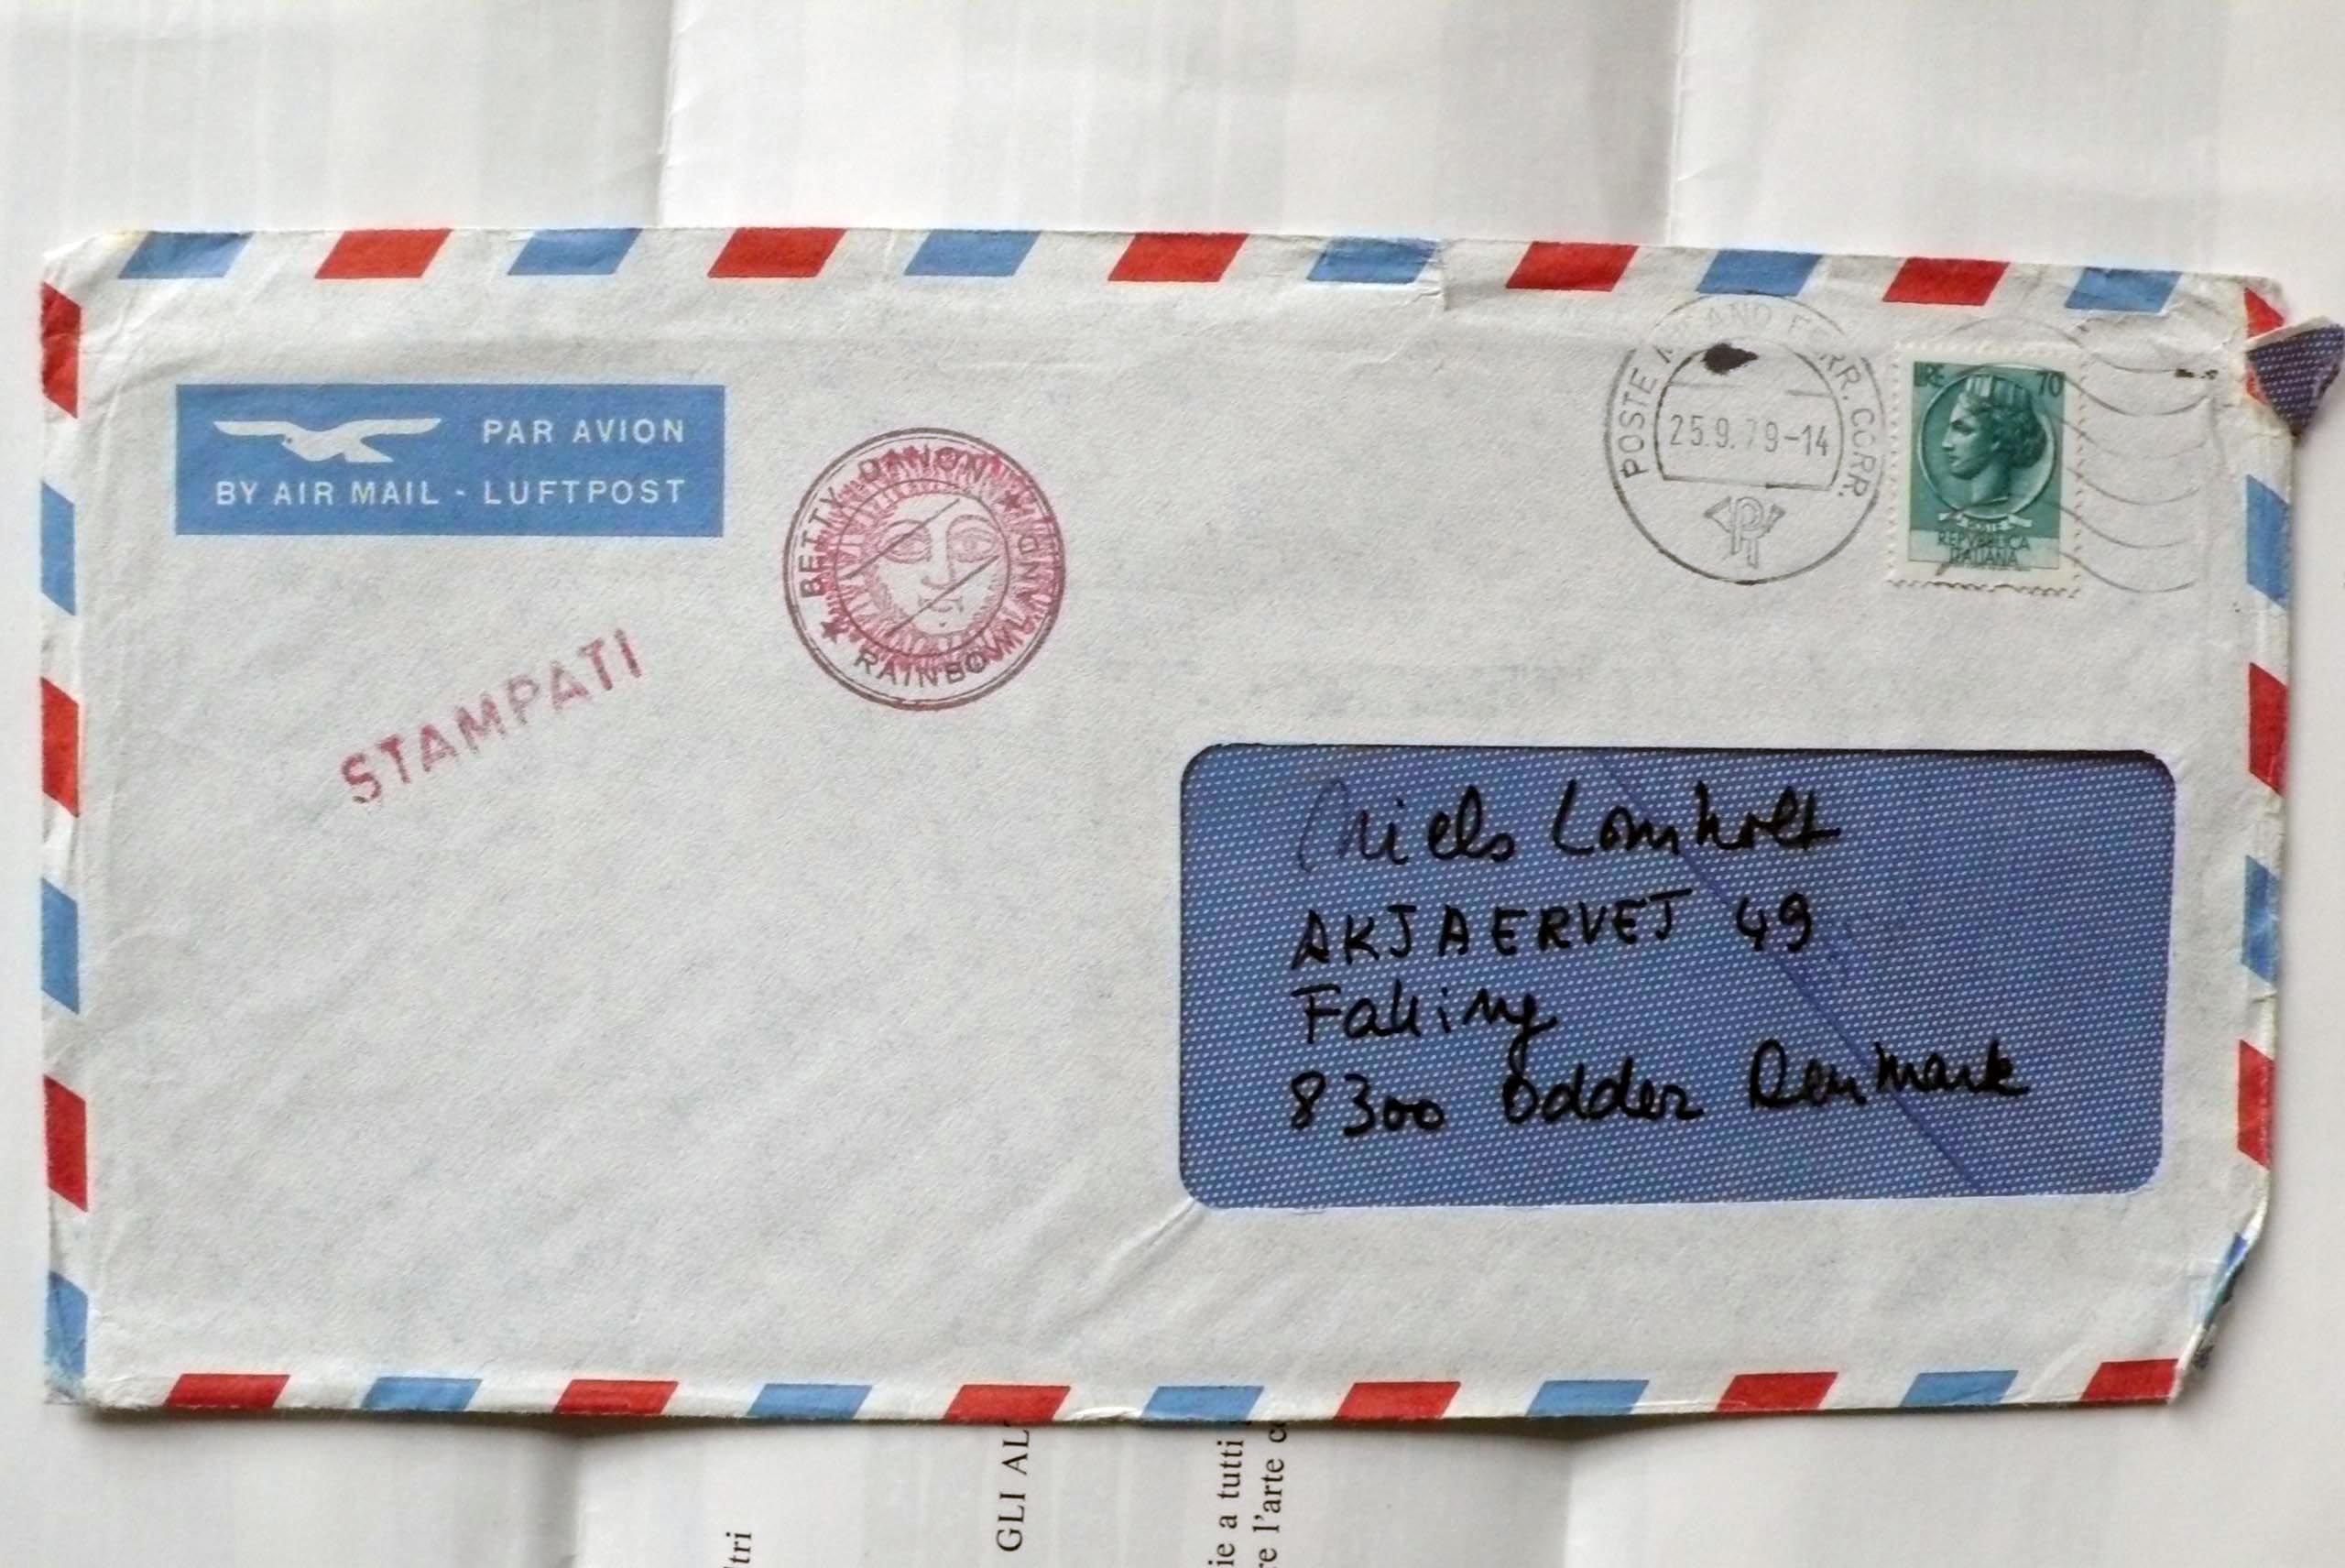 PAR AVION
BY AIR MAIL - LUFTPOST
BETTY DANON ★ RAINBOWLAND ★
STAMPATI
POSTE MILANO FERR. CORR.
25.9.79-14
LIRE 70
POSTE
REPVBBLICA
ITALIANA
Niels Lomholt
AKJAERVEJ 49
Falling
8300 Odder Denmark
tri
GLI AL
ie a tutti
re l'arte c